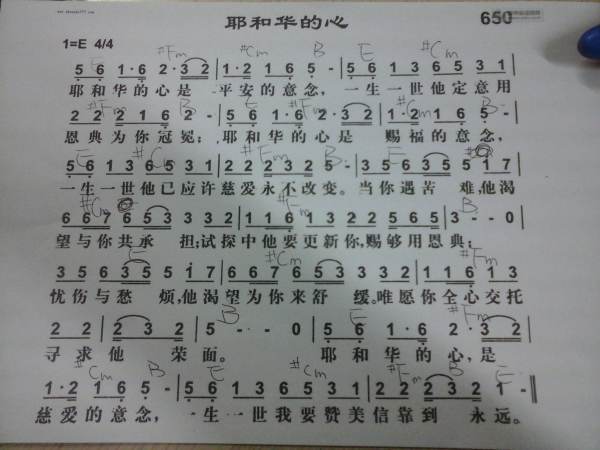 耶和华的心
650
1=E 4/4
#Fm #Cm B E #Cm
5 6 1·6 2·3 2 | 1·2 1 6 5 - | 5 6 1 3 6 5 3 1 |
耶和华的心是 平安的意念, 一生一世他定意用
#Fm B E #Fm #Cm B
2 2 2 1 6 2 - | 5 6 1·6 2·3 2 | 1·2 1 6 5 - |
恩典为你冠冕; 耶和华的心是 赐福的意念,
E #Cm #Fm B E
5 6 1 3 6 5 3 1 | 2 2 2 3 2 5 - | 3 5 6 3 5 5 1 7 |
一生一世他已应许慈爱永不改变。当你遇苦 难,他渴
#Cm #Fm B
6 6 7 6 5 3 3 3 2 | 1 1 6 1 3 2 2 5 6 5 | 3 - - 0 |
望与你共承 担;试探中他要更新你,赐够用恩典;
E #Cm #Fm
3 5 6 3 5 5 1 7 | 6 6 7 6 5 3 3 3 2 | 1 1 6 1 3 |
忧伤与愁 烦,他渴望为你来舒 缓。唯愿你全心交托
B E #Fm
2 2 2 3 2 | 5 - - 0 | 5 6 1·6 2·3 2 |
寻求他 荣面。 耶和华的心,是
#Cm B E #Cm #Fm B E
1·2 1 6 5 - | 5 6 1 3 6 5 3 1 | 2 2 2 3 2 1 - ‖
慈爱的意念, 一生一世我要赞美信靠到 永远。